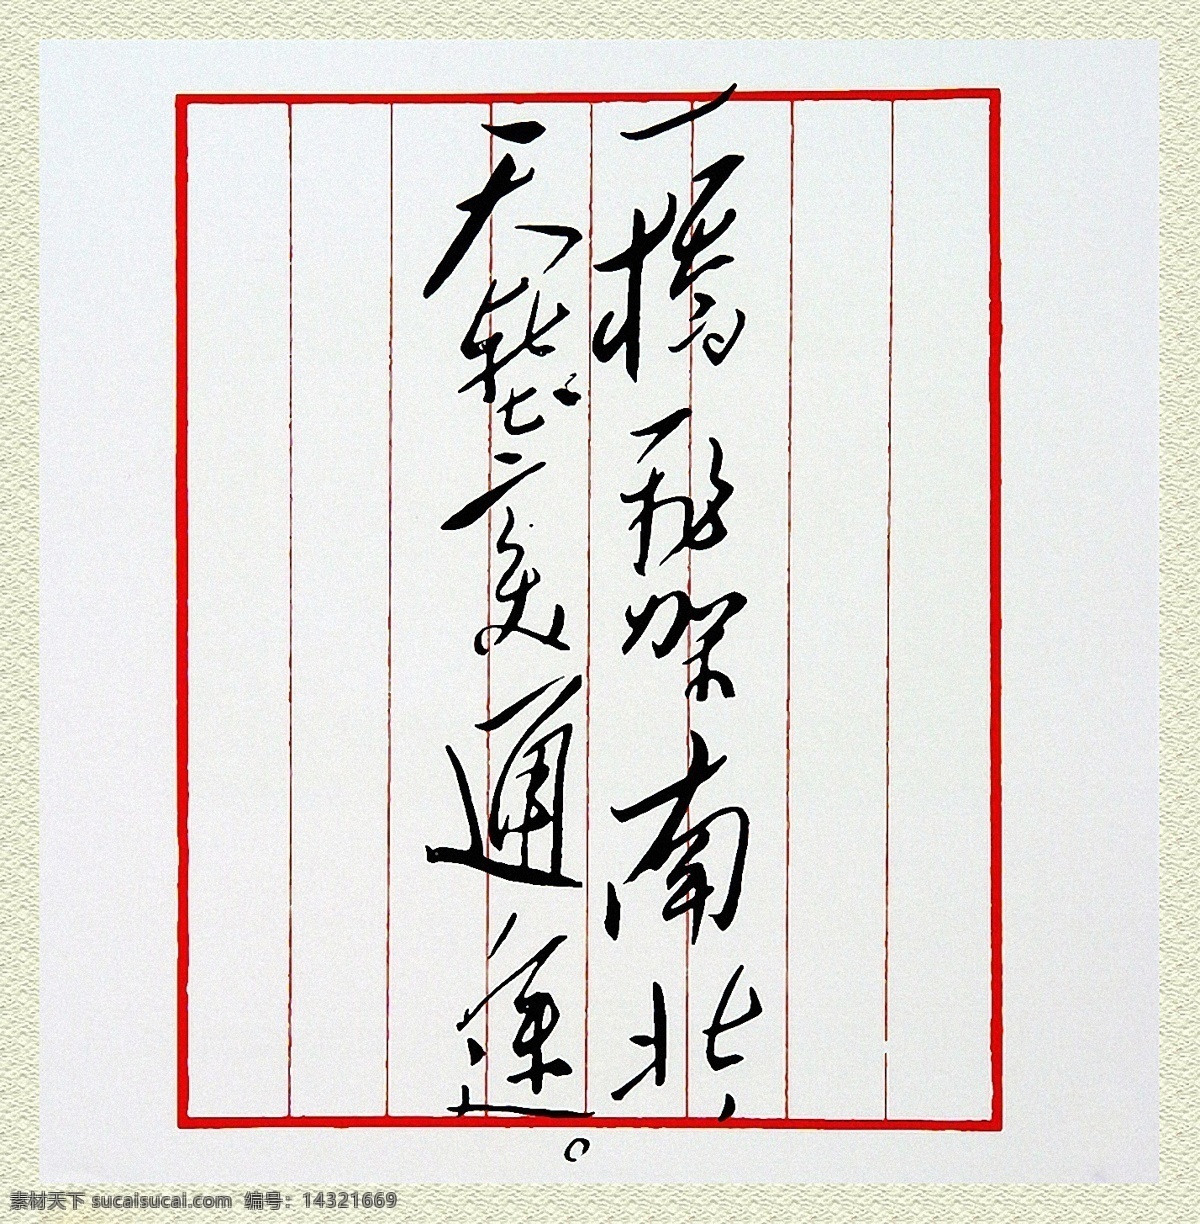 一橋飛架南北，
天塹変通途。
素材天下 sucaisucai.com 编号：14321669